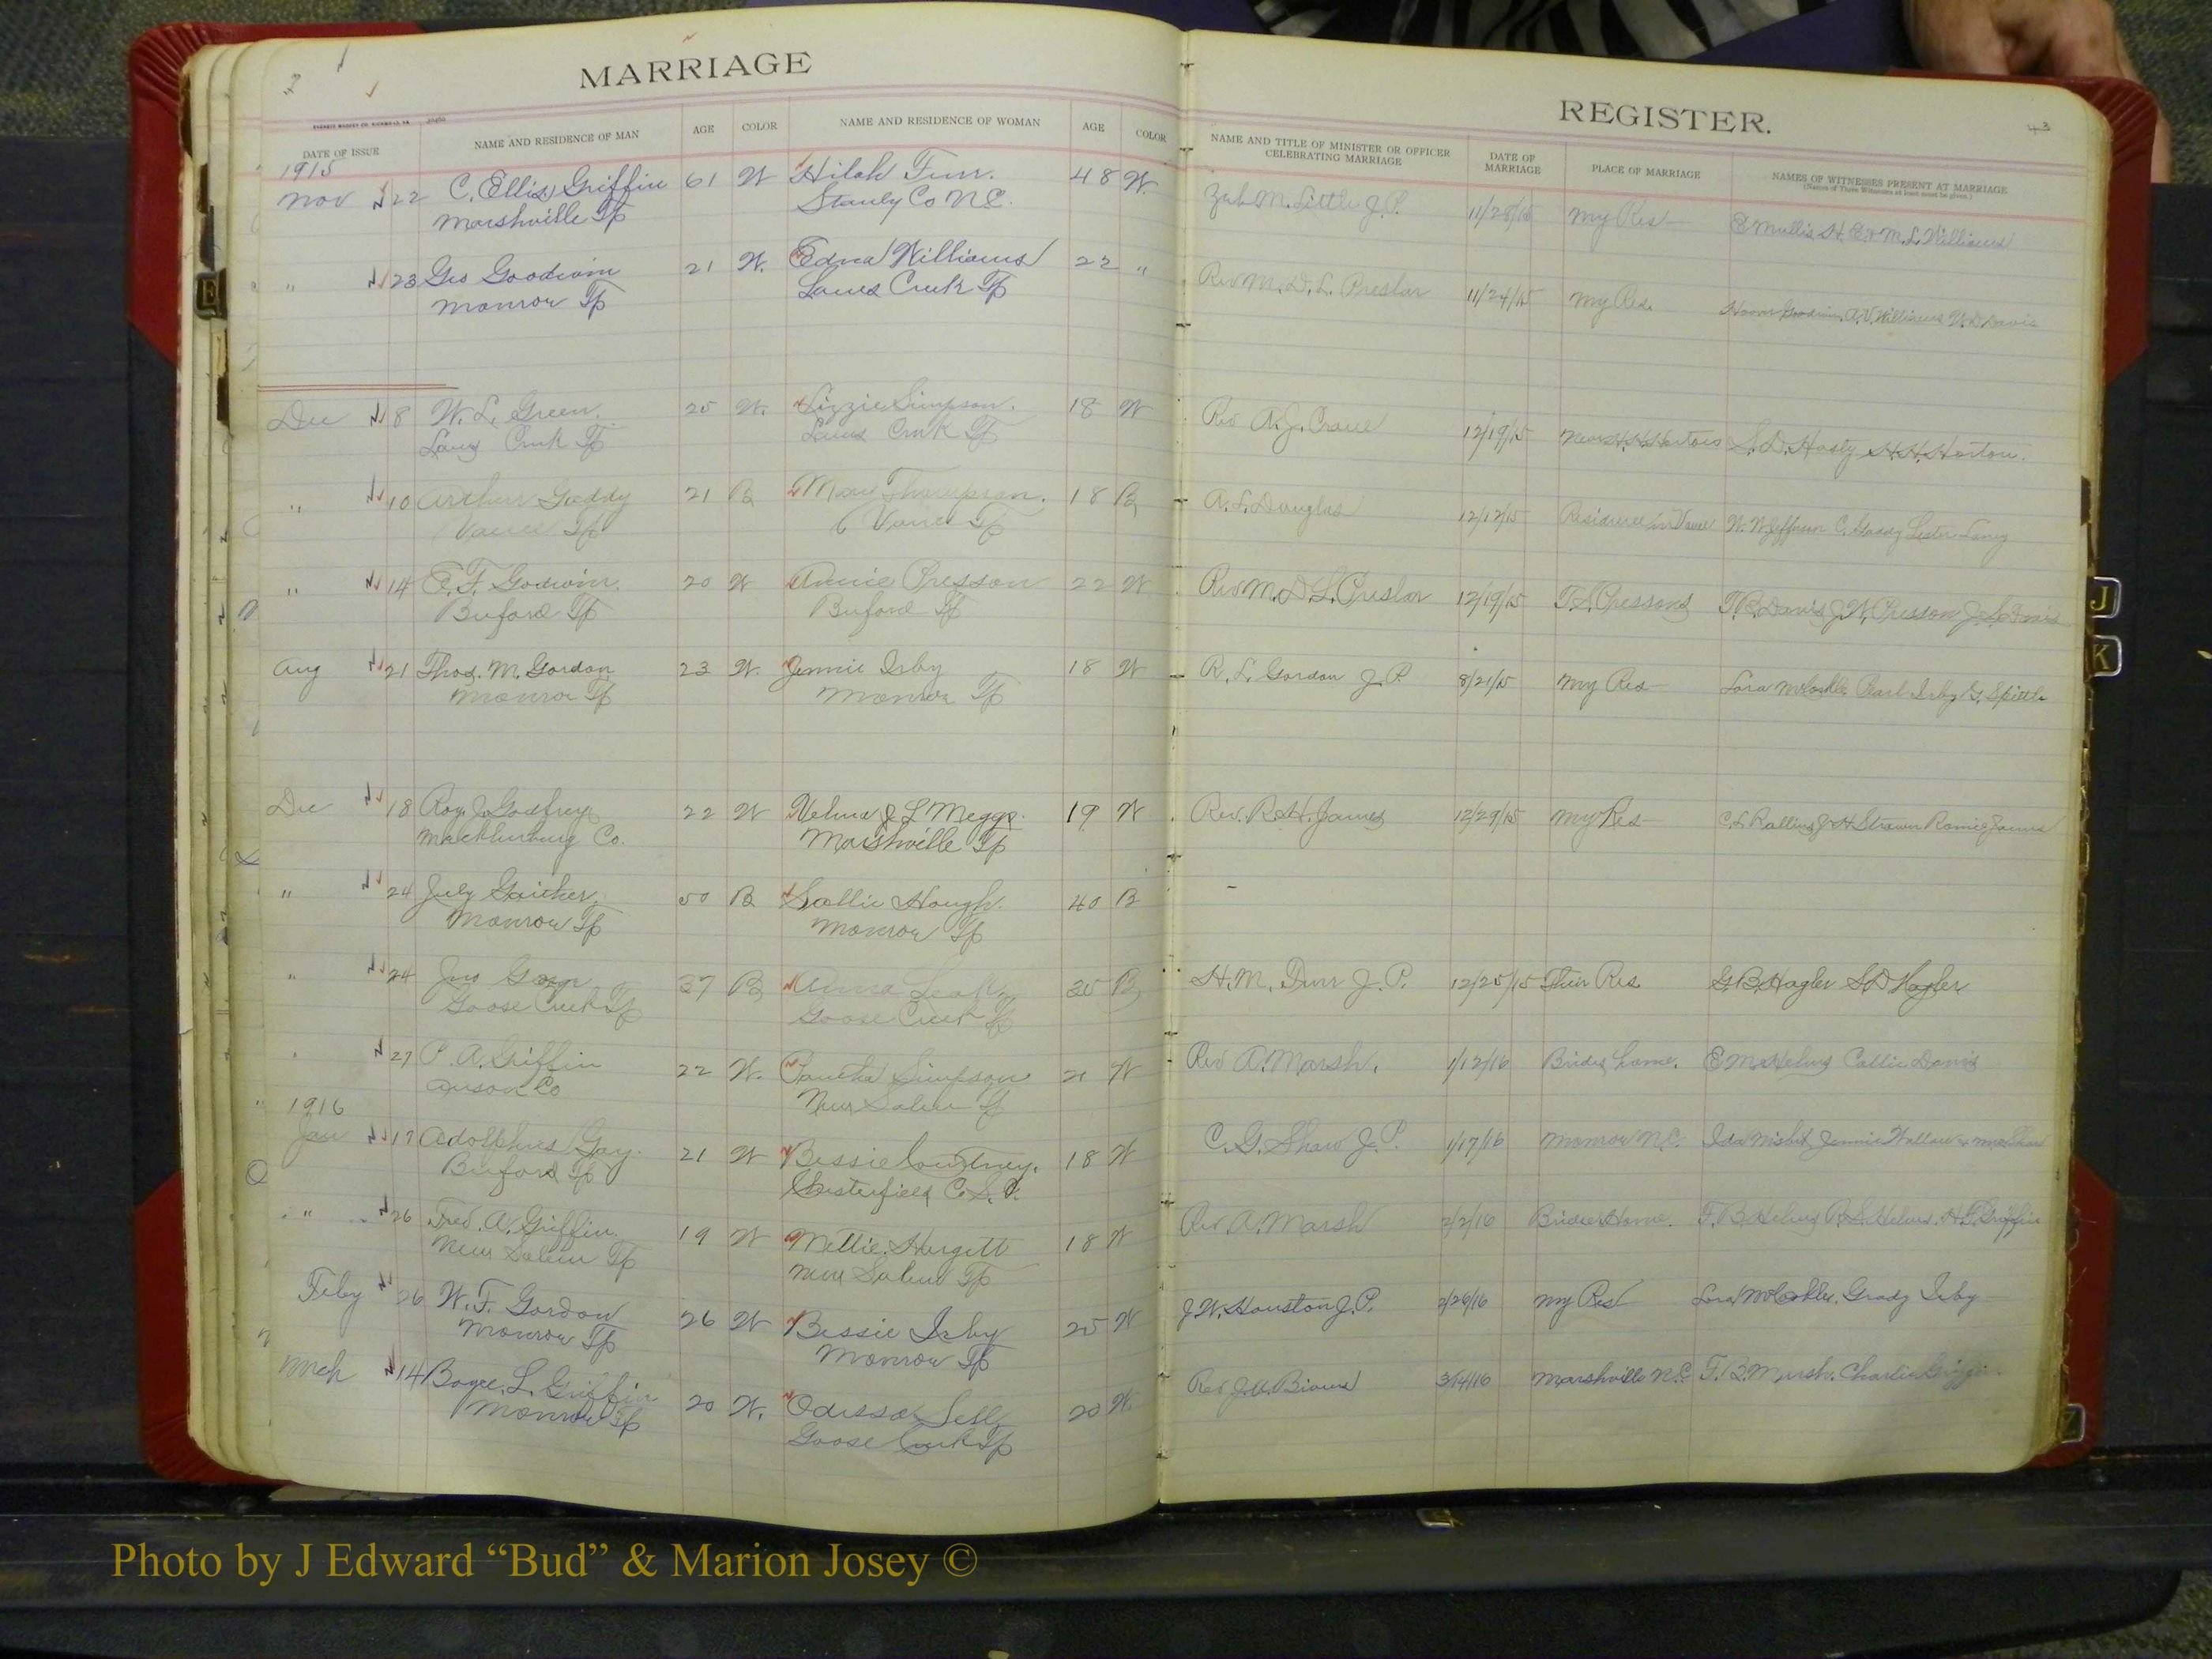 MARRIAGE
REGISTER.
DATE OF ISSUE
NAME AND RESIDENCE OF MAN
AGE
COLOR
NAME AND RESIDENCE OF WOMAN
AGE
COLOR
NAME AND TITLE OF MINISTER OR OFFICER
CELEBRATING MARRIAGE
DATE OF
MARRIAGE
PLACE OF MARRIAGE
NAMES OF WITNESSES PRESENT AT MARRIAGE
(Names of Three Witnesses at least must be given.)
43
1915
Nov 22 C. Ellis Griffin 61 W Hilah Furr. 48 W. M. Little J.P. 11/28/15 My Res E Mullis H. E. + M. L. Williams
Marshville Tp Stanly Co N.C.
" 23 Geo Goodwin 21 W. Edna Williams 22 " Rev M. D. L. Preslar 11/24/15 My Res. Goodwin, A.V. Williams Davis
Monroe Tp Lanes Creek Tp
Dec 8 W. L. Green. 25 W. Lizzie Simpson. 18 W Rev A. J. Crane 12/19/15 Near H.H. Hortons S. D. Hasty H.H. Horton.
Lanes Creek Tp Lanes Creek Tp
" 10 Arthur Gaddy 21 B Mary Thompson. 18 B A. L. Douglas 12/12/15 Residence in Vance W. W. Jefferson C. Gaddy Lester Laney
Vance Tp Vance Tp
" 14 E. F. Godwin. 20 W Annie Presson 22 W Rev M. D. L. Preslar 12/19/15 T. L. Pressons T. B. Davis J. W. Presson J. S. Davis
Buford Tp Buford Tp
Aug 21 Thos. M. Gordon 23 W. Jennie Irby 18 W R. L. Gordon J.P. 8/21/15 My Res Lora McCorkle Pearl Irby G. Spittle
Monroe Tp Monroe Tp
Dec 18 Roy J. Godfrey 22 W Velma J L Meggs. 19 W Rev. R. H. James 12/29/15 My Res C. L. Rollins J. H. Strawn Romie James
Mecklenburg Co. Marshville Tp
" 24 July Gaither. 50 B Sallie Hough. 40 B -
Monroe Tp Monroe Tp
" 24 Jno 27 B Anna 25 B H. M. Furr J.P. 12/25/15 Their Res. G. B. Hagler S. D Hagler
Goose Creek Tp Goose Creek Tp
27 P. A. Griffin 22 W. Simpson 21 W Rev A. Marsh. 1/12/16 Brides home. E M Helms Callie Davis
Anson Co New Salem Tp
1916
Jan 17 Adolphus Gay. 21 W Bessie Courtney. 18 W C. G. Shaw J.P. 1/17/16 Monroe N.C. Ida Nisbet Jennie Wallace + Mrs Shaw
Buford Tp Chesterfield C. S. C.
" 26 Fred. A. Griffin. 19 W Mettie Hargett 18 W Rev A. Marsh 2/2/16 Brides Home. F. B. Helms R. S. Helms. H. L. Griffin
New Salem Tp New Salem Tp
Feby 26 W. F. Gordon 26 W Bessie Irby 25 W J. W. Houston J.P. 2/26/16 My Res Lora McCorkle. Grady Irby
Monroe Tp Monroe Tp
Mch 14 Boyce. L. Griffin 20 W. Odessa Sell 20 W. Rev 3/14/16 Marshville N.C. F. B. Marsh. Charlie Griffin
Monroe Tp Goose Creek Tp
J
K
Z
Photo by J Edward “Bud” & Marion Josey ©